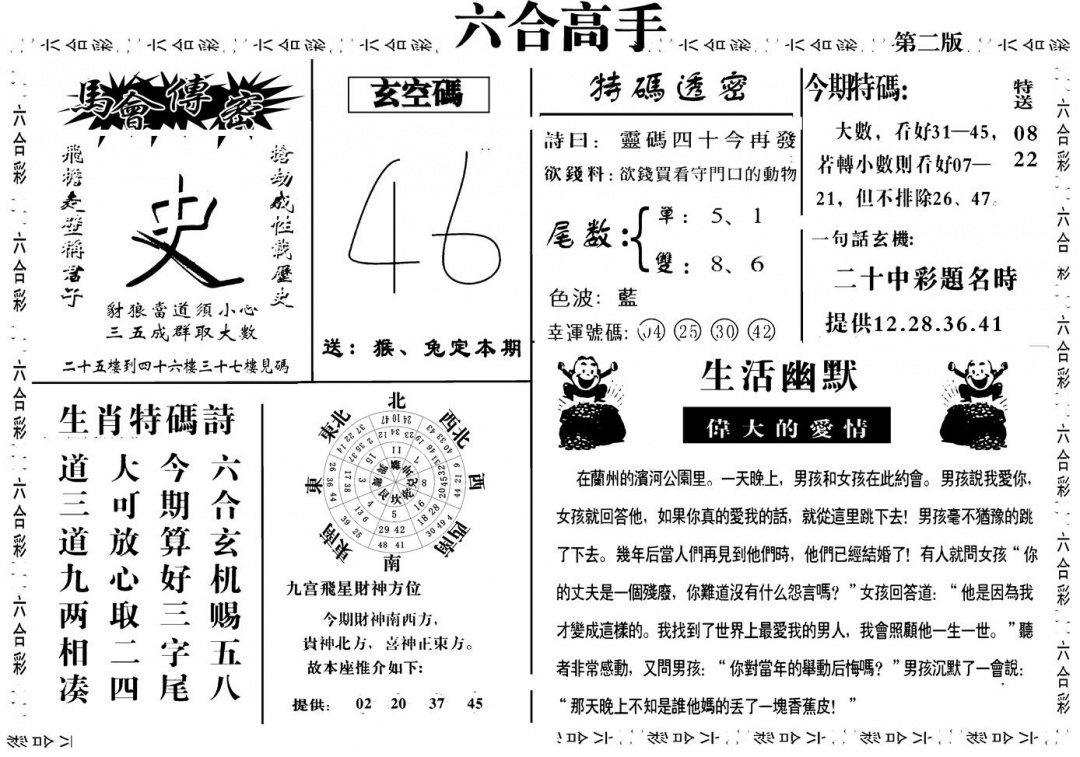 六合高手
第二版
馬會傳密
飛檐走壁稱君子
史
搶劫成性載歷史
豺狼當道須小心
三五成群取大數
二十五樓到四十六樓三十七樓見碼
玄空碼
46
送：猴、兔定本期
特碼透密
詩曰：靈碼四十今再發
欲錢料：欲錢買看守門口的動物
尾数：
單：5、1
雙：8、6
色波：藍
幸運號碼：04 25 30 42
今期特碼：
大數，看好31—45，
若轉小數則看好07—
21，但不排除26、47。
特送
08
22
一句話玄機：
二十中彩題名時
提供12.28.36.41
生肖特碼詩
六合玄机赐五八
今期算好三字尾
大可放心取二四
道三道九两相凑
北
西北
西
西南
南
東南
東
東北
九宫飛星財神方位
今期財神南西方，
貴神北方，喜神正東方。
故本座推介如下：
提供： 02 20 37 45
生活幽默
偉大的愛情
在蘭州的濱河公園里。一天晚上，男孩和女孩在此約會。男孩說我愛你，
女孩就回答他，如果你真的愛我的話，就從這里跳下去！男孩毫不猶豫的跳
了下去。幾年后當人們再見到他們時，他們已經結婚了！有人就問女孩“你
的丈夫是一個殘廢，你難道沒有什么怨言嗎？”女孩回答道：“他是因為我
才變成這樣的。我找到了世界上最愛我的男人，我會照顧他一生一世。”聽
者非常感動，又問男孩：“你對當年的舉動后悔嗎？”男孩沉默了一會說：
“那天晚上不知是誰他媽的丢了一塊香蕉皮！”
六合彩 六合彩 六合彩 六合彩 六合彩
六合彩 六合彩 六合彩 六合彩 六合彩